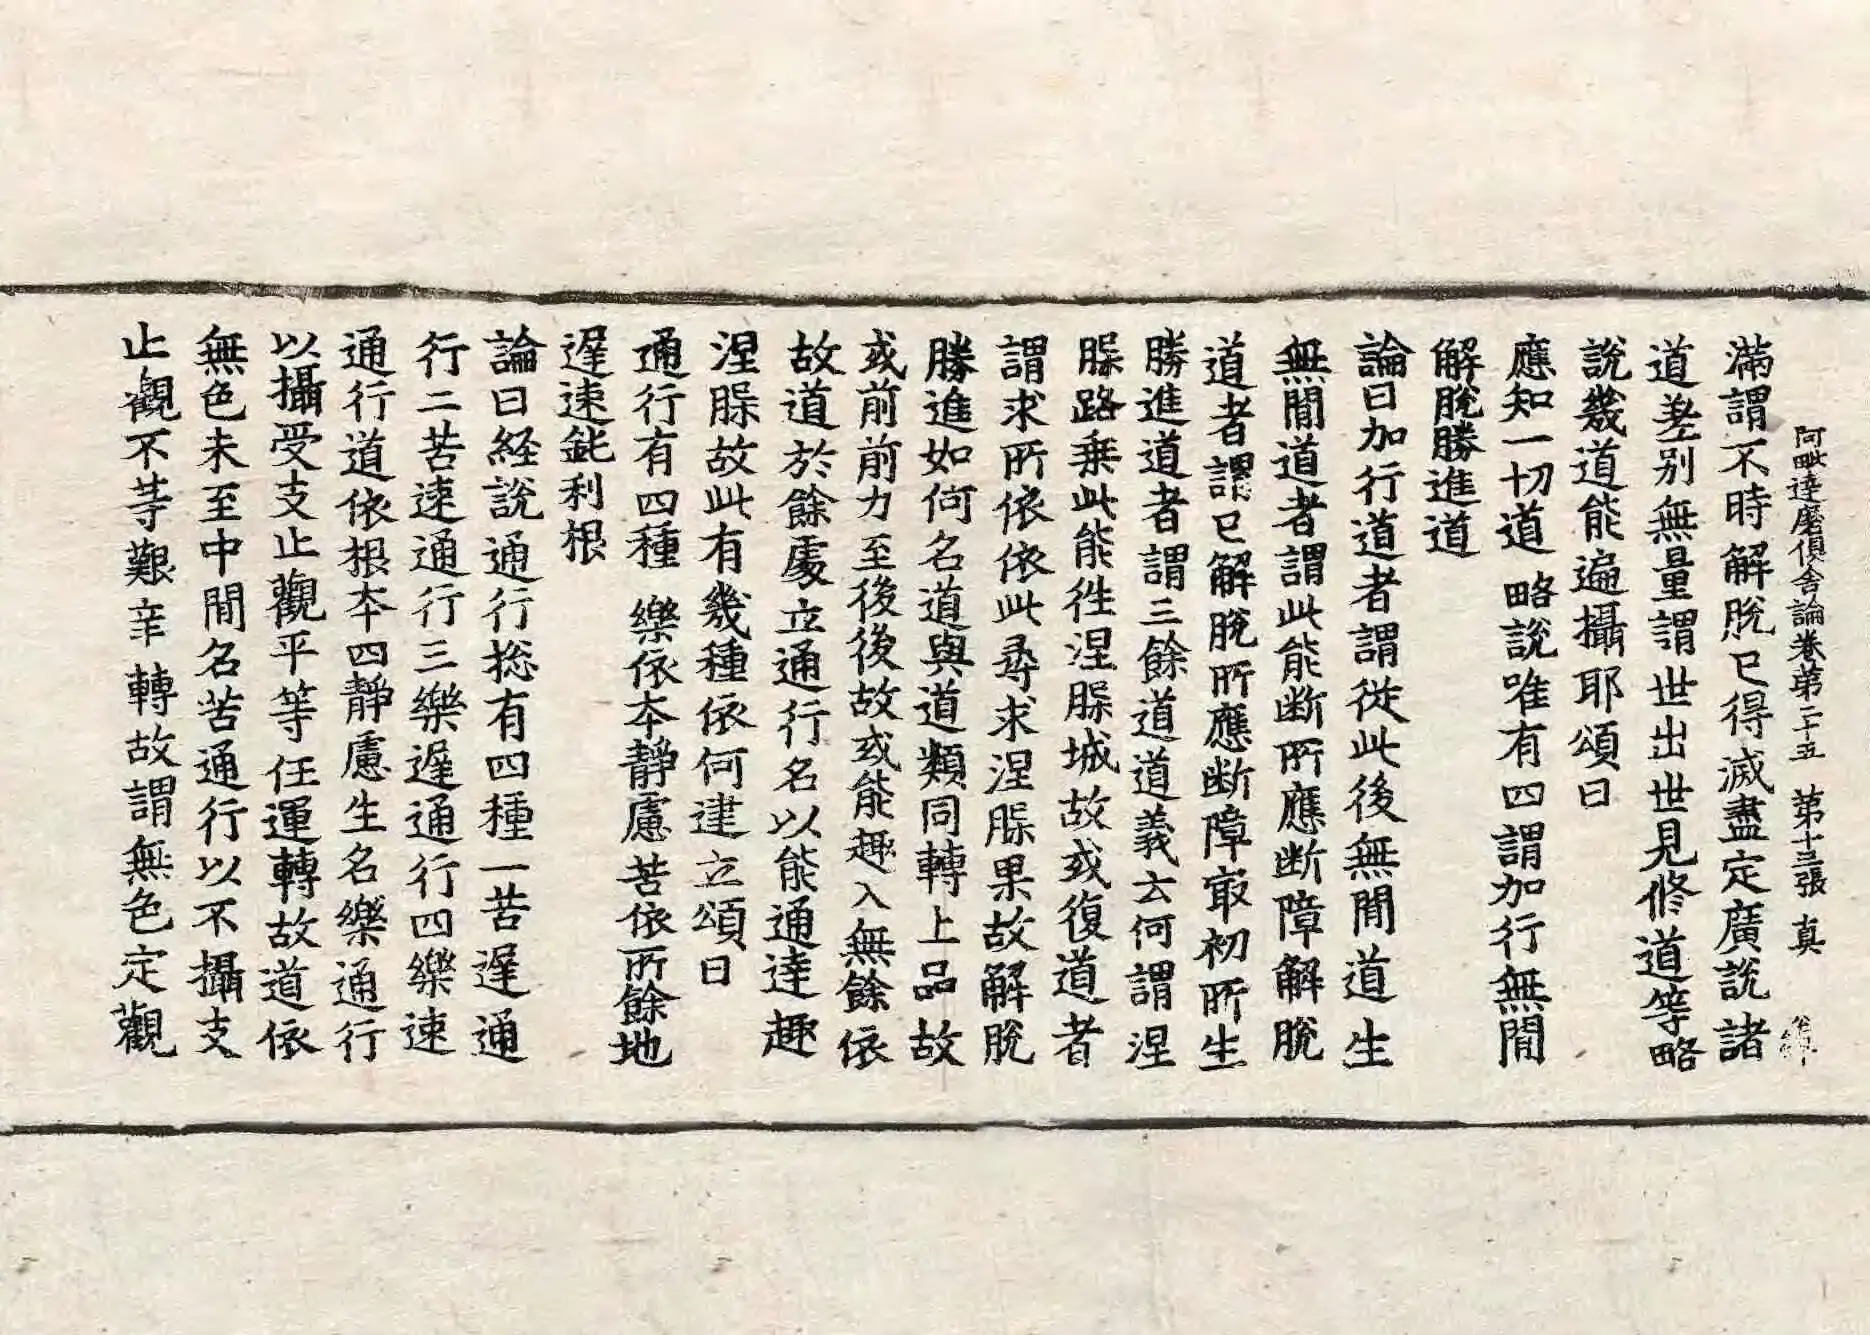 阿毗達磨俱舍論卷第二十五 第十三張 真
滿謂不時解脫已得滅盡定廣說諸
道差別無量謂世出世見修道等略
說幾道能遍攝耶頌曰
應知一切道 略說唯有四謂加行無間
解脫勝進道
論曰加行道者謂從此後無間道生
無間道者謂此能断所應断障解脫
道者謂已解脫所應断障㝡初所生
勝進道者謂三餘道道義云何謂涅
槃路乗此能徃涅槃城故或復道者
謂求所依依此尋求涅槃果故解脫
勝進如何名道與道類同轉上品故
或前前力至後後故或能趣入無餘依
故道於餘處立通行名以能通達趣
涅槃故此有幾種依何建立頌曰
通行有四種 樂依本靜慮苦依所餘地
遲速鈍利根
論曰経說通行揔有四種一苦遲通
行二苦速通行三樂遲通行四樂速
通行道依根本四靜慮生名樂通行
以攝受支止觀平等任運轉故道依
無色未至中間名苦通行以不攝支
止觀不等艱辛轉故謂無色定觀